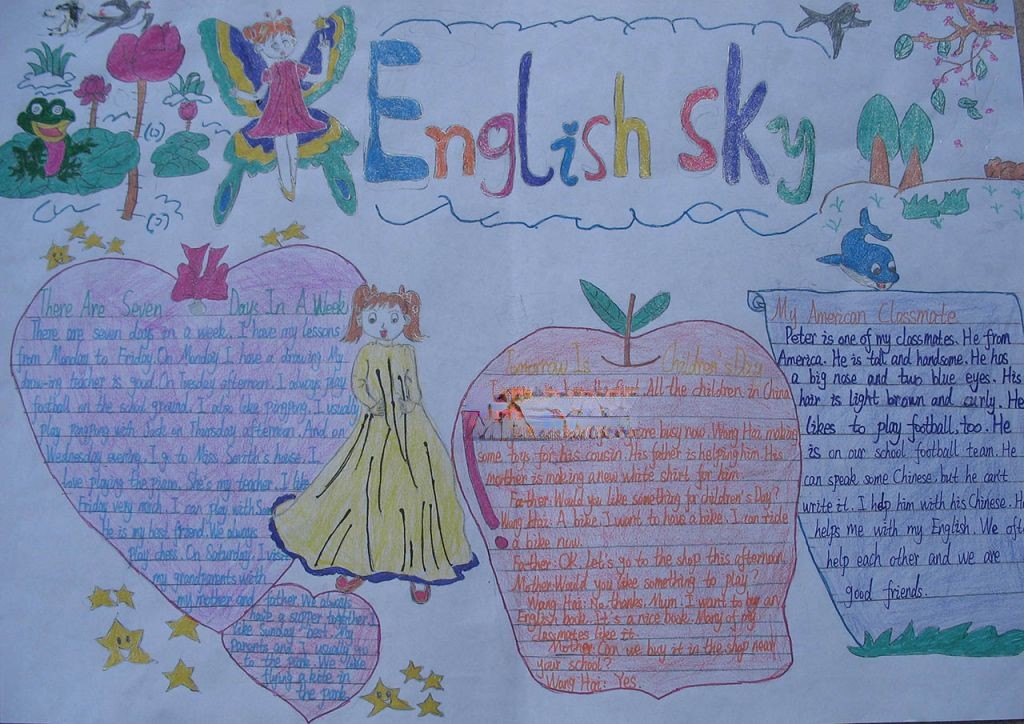 English Sky
There Are Seven Days In A Week
There are seven days in a week. I have my lessons
from Monday to Friday. On Monday I have a drawing. My
draw-ing teacher is good. On Tuesday afternoon. I always play
football on the school ground. I also like pingpong. I usually
play pingpong with Jack on Thursday afternoon. And on
Wednesday evening. I go to Miss Smith's house. I
love playing the piano. She's my teacher. I like
Friday very much. I can play with Sam
He is my best friend. We always
play chess. On Saturday. I visit
my grandparents with
my mother and father. We always
have a supper together. I
like Sunday best. My
Parents and I usually go
to the park. We like
flying a kite in
the park.
Tomorrow Is Children's Day
All the children in China
are busy now. Wang Hai making
some toys for his cousin. His father is helping him. His
mother is making a new white shirt for him.
Father: Would you like something for children's Day?
Wang Hai: A bike. I want to have a bike. I can ride
a bike now.
Father: OK. Let's go to the shop this afternoon.
Mother: Would you like something to play?
Wang Hai: No, thanks, Mum. I want to buy an
English book. It is a nice book. Many of my
classmates like it.
Mother: Can we buy it in the shop near
your school?
Wang Hai: Yes.
My American Classmate
Peter is one of my classmates. He from
America. He is tall and handsome. He has
a big nose and two blue eyes. His
hair is light brown and curly. He
likes to play football, too. He
is on our school football team. He
can speak some Chinese. but he can't
write it. I help him with his Chinese. He
helps me with my English. We oft
help each other and we are
good friends.